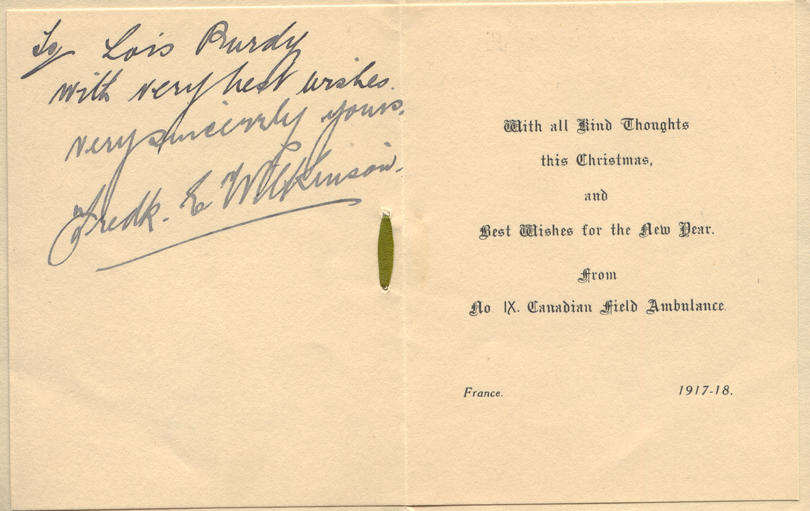 To Lois Purdy
with very best wishes.
very sincerely yours.
Fredk. E Wilkinson.
With all Kind Thoughts
this Christmas,
and
Best Wishes for the New Year.
From
No IX. Canadian Field Ambulance.
France. 1917-18.